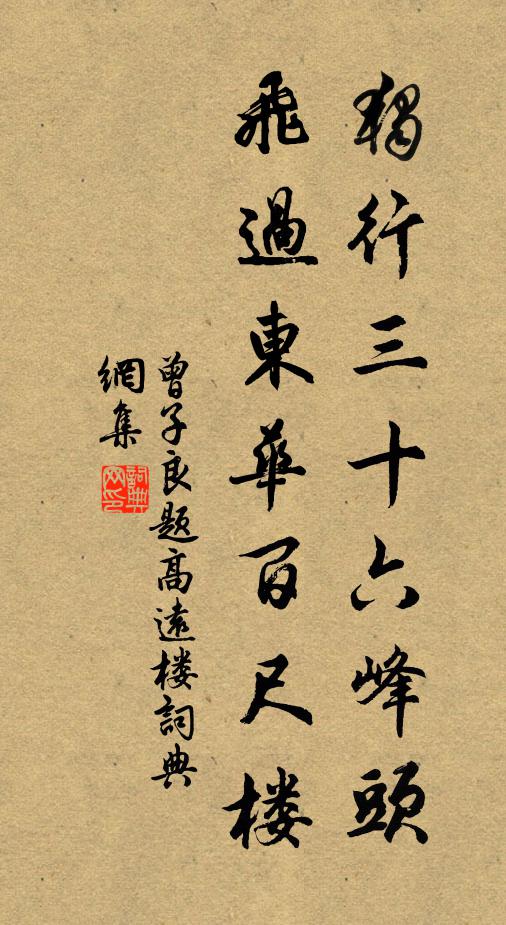 獨行三十六峰頭
飛過東華百尺楼
曾子良题高遠楼詞典
網集
詞典
网印